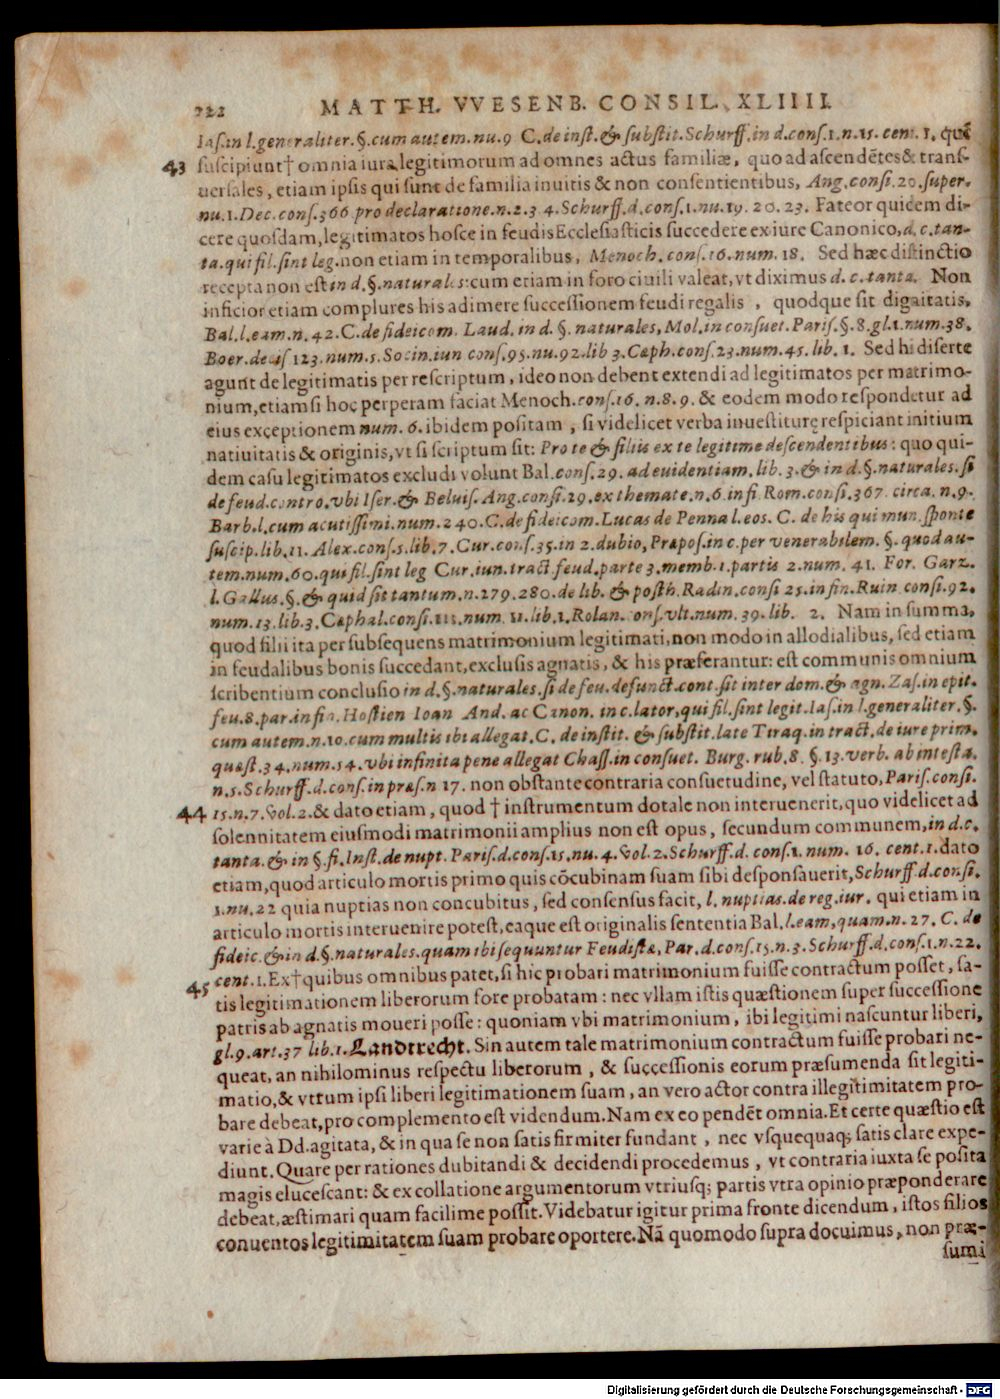 222 MATTH. VVESENB. CONSIL. XLIIII.
Iaſ.in l.generaliter.§.cum autem.nu.9 C.de inſt.& ſubſtit.Schurff.in d.conſ.1.n.15. cent. 1. qui
43 ſuſcipiunt† omnia iura legitimorum ad omnes actus familiæ, quo ad aſcendẽtes & tranſ-
uerſales, etiam ipſis qui ſunt de familia inuitis & non conſentientibus, Ang.conſi.20.ſuper.
nu.1.Dec.conſ.366 pro declaratione.n.2.3 4.Schurff.d.conſ.1.nu.19. 20. 23. Fateor quidem di-
cere quoſdam,legitimatos hoſce in feudis Eccleſiaſticis ſuccedere ex iure Canonico,d.c.tan-
ta.qui fil.ſint leg.non etiam in temporalibus, Menoch. conſ.16.num. 18. Sed hæc diſtinctio
recepta non eſt in d.§.naturales:cum etiam in foro ciuili valeat,vt diximus d. c.tanta. Non
inficior etiam complures his adimere ſucceſſionem feudi regalis, quodque ſit dignitatis.
Bal.l.eam.n.42.C.de fideicom. Laud.in d. §. naturales, Mol.in conſuet. Pariſ.§.8.gl.1.num.38.
Boer.deciſ 123.num.5.Socin.iun conſ.95.nu.92.lib 3.Ceph.conſ.23.num.45.lib. 1. Sed hi diſerte
agunt de legitimatis per reſcriptum, ideo non debent extendi ad legitimatos per matrimo-
nium,etiamſi hoc perperam faciat Menoch.conſ.16. n.8.9. & eodem modo reſpondetur ad
eius exceptionem num. 6. ibidem poſitam, ſi videlicet verba inueſtiturę reſpiciant initium
natiuitatis & originis,vt ſi ſcriptum ſit: Pro te & filiis ex te legitime deſcendentibus: quo qui-
dem caſu legitimatos excludi volunt Bal.conſ.29. ad euidentiam. lib. 3.& in d.§.naturales.ſi
de feud.contro.vbi Iſer.& Beluiſ. Ang.conſi.29.ex themate.n.6.in fi Rom.conſi.367 circa. n.9.
Barb.l.cum acutiſſimi.num.240.C.de fideicom.Lucas de Penna l.eos. C. de his qui mun.ſponte
ſuſcip.lib.11. Alex.conſ.5.lib.7.Cur.conſ.35.in 2.dubio, Præpoſ.in c.per venerabilem. §. quod au-
tem.num.60.qui fil.ſint leg Cur.iun.tract feud.parte 3.memb.1.partis 2.num. 41. For. Garz.
l.Gallus.§.& quid ſi tantum.n.279.280.de lib. & poſth.Radin.conſi 25.in fin.Ruin conſi.92.
num.13.lib.3.Cephal.conſi.111.num. 11.lib.1.Rolan. conſ.vlt.num. 39. lib. 2. Nam in ſumma,
quod filii ita per ſubſequens matrimonium legitimati,non modo in allodialibus, ſed etiam
in feudalibus bonis ſuccedant,excluſis agnatis, & his præferantur: eſt communis omnium
ſcribentium concluſio in d.§.naturales.ſi de feu.defunct.cont.ſit inter dom.& agn. Zaſ.in epit.
feu.8.par.in fin.Hoſtien Ioan And. ac Canon. in c.lator.qui fil.ſint legit.Iaſ.in l.generaliter.§.
cum autem.n.10.cum multis ibi allegat.C. de inſtit. & ſubſtit.late Tiraq.in tract.de iure prim.
quæſt.34.num.54.vbi infinita pene allegat Chaſſ.in conſuet. Burg. rub.8. §.13.verb. ab inteſta.
n.5.Schurff.d.conſ.in præſ.n 17. non obſtante contraria conſuetudine, vel ſtatuto, Pariſ.conſi.
44 15.n.7.vol.2.& dato etiam, quod † inſtrumentum dotale non interuenerit,quo videlicet ad
ſolennitatem eiuſmodi matrimonii amplius non eſt opus, ſecundum communem,in d.c.
tanta.& in §.fi.Inſt.de nupt. Pariſ.d.conſ.15.nu.4.vol.2.Schurff.d. conſ.1. num. 16. cent.1.dato
etiam,quod articulo mortis primo quis cõcubinam ſuam ſibi deſponſauerit,Schurff.d.conſi.
1.nu.22 quia nuptias non concubitus, ſed conſenſus facit, l. nuptias.de reg.iur. qui etiam in
articulo mortis interuenire poteſt, eaque eſt originalis ſententia Bal.l.eam,quam.n. 27. C. de
fideic.& in d.§.naturales.quam ibi ſequuntur Feudiſtæ, Par.d.conſ.15.n.3.Schurff.d.conſ.1.n.22.
45 cent.1.Ex†quibus omnibus patet,ſi hic probari matrimonium fuiſſe contractum poſſet, ſa-
tis legitimationem liberorum fore probatam: nec vllam iſtis quæſtionem ſuper ſucceſſione
patris ab agnatis moueri poſſe: quoniam vbi matrimonium, ibi legitimi naſcuntur liberi,
gl.9.art.37 lib.1.Landtrecht. Sin autem tale matrimonium contractum fuiſſe probari ne-
queat, an nihilominus reſpectu liberorum, & ſucceſſionis eorum præſumenda ſit legiti-
matio,& vtrum ipſi liberi legitimationem ſuam, an vero actor contra illegitimitatem pro-
bare debeat,pro complemento eſt videndum.Nam ex eo pendẽt omnia.Et certe quæſtio eſt
varie à Dd.agitata, & in qua ſe non ſatis firmiter fundant, nec vſquequaq; ſatis clare expe-
diunt.Quare per rationes dubitandi & decidendi procedemus, vt contraria iuxta ſe poſita
magis eluceſcant: & ex collatione argumentorum vtriuſq; partis vtra opinio præponderare
debeat,æſtimari quam facilime poſſit.Videbatur igitur prima fronte dicendum, iſtos filios
conuentos legitimitatem ſuam probare oportere.Nã quomodo ſupra docuimus, non præ-
ſumi
Digitalisierung gefördert durch die Deutsche Forschungsgemeinschaft - DFG